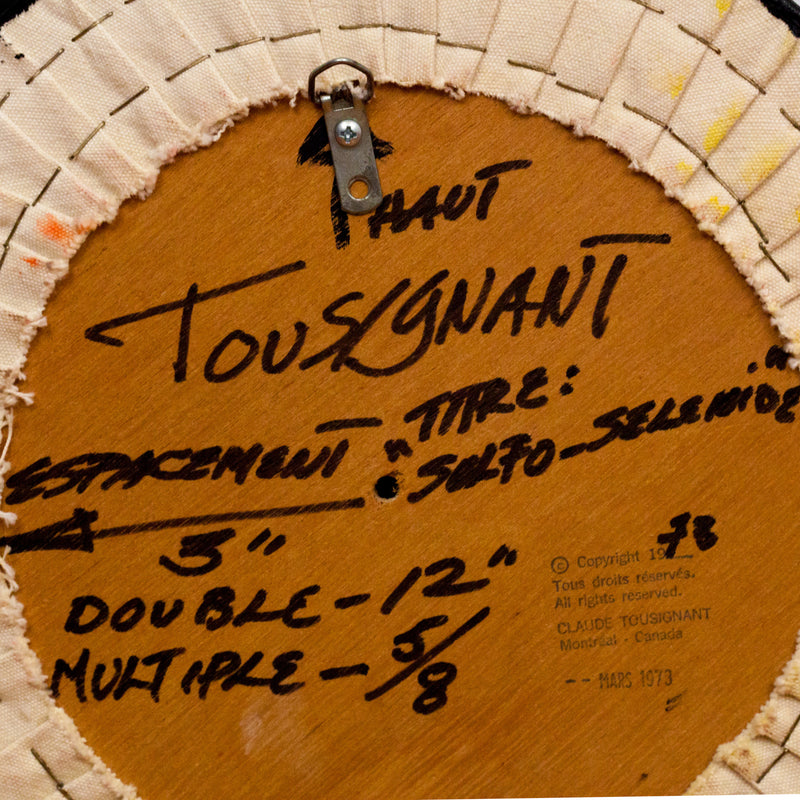 HAUT
TOUSIGNANT
"TITRE:
ESPACEMENT
SULFO-SELENIDE"
3"
DOUBLE - 12"
MULTIPLE - 5/8
© Copyright 1973
Tous droits réservés.
All rights reserved.
CLAUDE TOUSIGNANT
Montréal - Canada
-- MARS 1973